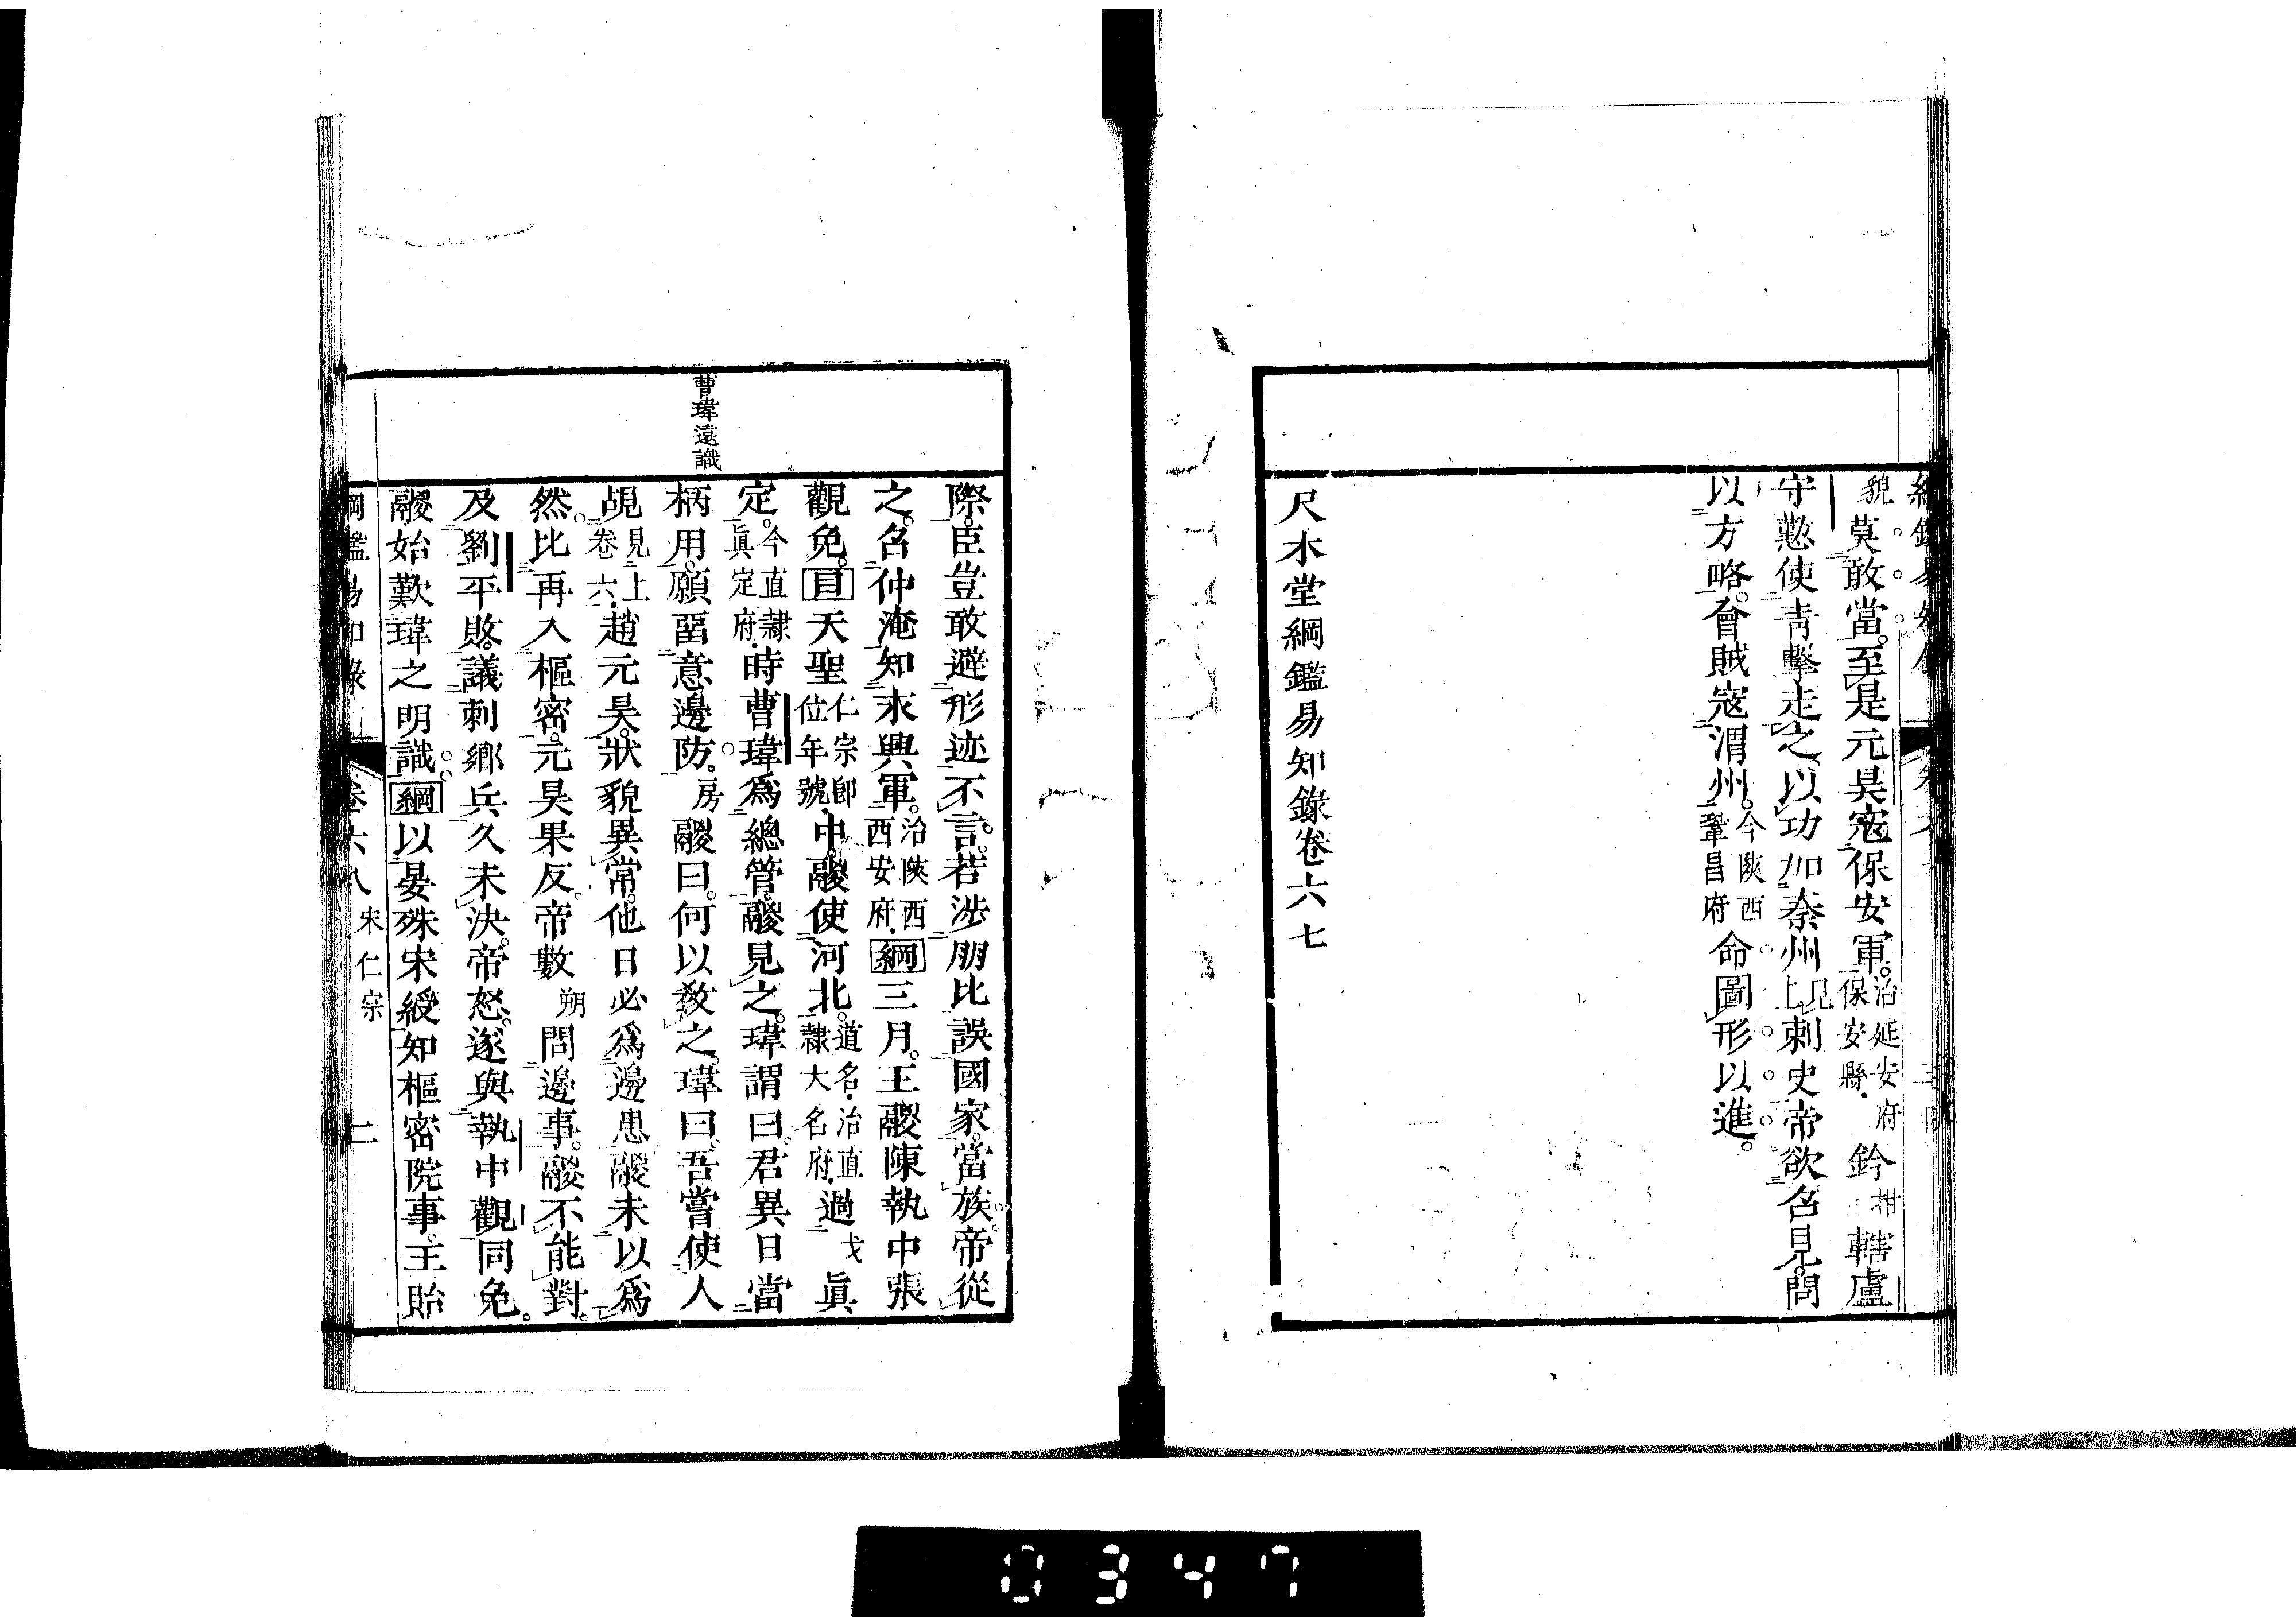 貌莫敢當。至是元昊寇保安軍。治延安府保安縣．鈐拑轄盧
守懃使靑擊走之、以功加秦州見上刺史帝欲召見。問
以方略。會賊寇渭州。今陝西鞏昌府命圖形以進。
尺木堂綱鑑易知錄卷六七
曹瑋遠識
際。臣豈敢避形迹不言。若涉朋比誤國家。當族。帝從
之。召仲淹知永興軍。治陝西西安府．綱三月。王鬷陳執中張
觀免。目天聖仁宗卽位年號．中。鬷使河北。道名．治直隸大名府．過戈眞
定。今直隸眞定府．時曹瑋爲總管。鬷見之。瑋謂曰。君異日當
柄用。願畱意邊防。房鬷曰。何以敎之。瑋曰。吾嘗使人
覘見上卷六．趙元昊。狀貌異常。他日必爲邊患。鬷未以爲
然。比再入樞密。元昊果反。帝數朔問邊事。鬷不能對。
及劉平敗。議刺鄕兵久未決。帝怒。遂與執中觀同免。
鬷始歎瑋之明識。綱以晏殊宋綬知樞密院事。王貽
綱鑑易知錄 卷六八 宋仁宗 二
0347